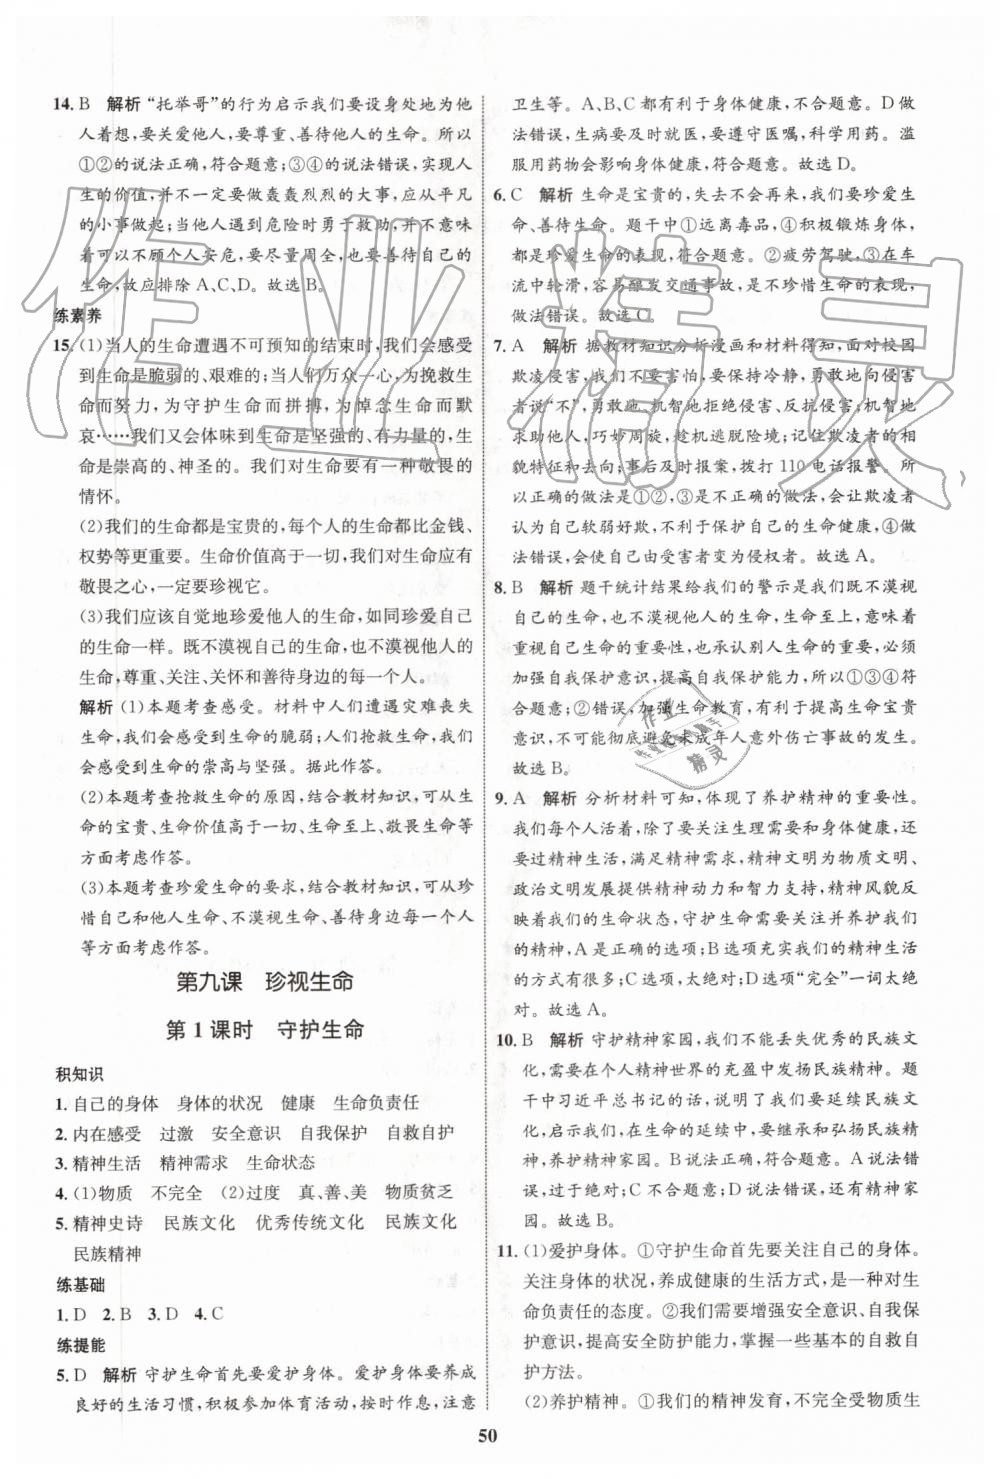 14. B　解析　“托举哥”的行为启示我们要设身处地为他
人着想,要关爱他人,要尊重、善待他人的生命。所以
①②的说法正确,符合题意;③④的说法错误,实现人
生的价值,并不一定要做轰轰烈烈的大事,应从平凡
的小事做起;当他人遇到危险时勇于救助,并不意味
着可以不顾个人安危,要尽量周全,也要善待自己的
生命,故应排除A、C、D。故选B。
练素养
15. (1)当人的生命遭遇不可预知的结束时,我们会感受
到生命是脆弱的、艰难的;当人们万众一心,为挽救生
命而努力,为守护生命而拼搏,为悼念生命而默
哀……我们又会体味到生命是坚强的、有力量的,生
命是崇高的、神圣的。我们对生命要有一种敬畏的
情怀。
(2)我们的生命都是宝贵的,每个人的生命都比金钱、
权势等更重要。生命价值高于一切,我们对生命应有
敬畏之心,一定要珍视它。
(3)我们应该自觉地珍爱他人的生命,如同珍爱自己
的生命一样。既不漠视自己的生命,也不漠视他人的
生命,尊重、关注、关怀和善待身边的每一个人。
解析　(1)本题考查感受。材料中人们遭遇灾难丧失
生命,会感受到生命的脆弱;人们抢救生命,我们会
会感受到生命的崇高与坚强。据此作答。
(2)本题考查抢救生命的原因,结合教材知识,可从生
命的宝贵、生命价值高于一切、敬畏生命、生命至上等
方面考虑作答。
(3)本题考查珍爱生命的要求,结合教材知识,可从珍
惜自己和他人生命、不漠视生命、善待身边的每一个人
等方面考虑作答。
第九课　珍视生命
第1课时　守护生命
积知识
1. 自己的身体　身体的状况　健康　生命负责任
2. 内在感受　过激　安全意识　自我保护　自救自护
3. 精神生活　精神需求　生命状态
4. (1)物质　不完全　(2)过度　真、善、美　物质贫乏
5. 精神史诗　民族文化　优秀传统文化　民族文化
民族精神
练基础
1. D　2. B　3. D　4. C
练提能
5. D　解析　守护生命首先要爱护身体。爱护身体要养成
良好的生活习惯,积极参加体育活动,按时作息,健康
卫生等。A、B、C都有利于身体健康,不合题意。D做
法错误,生病要及时就医,要遵守医嘱,科学用药。滥
服用药物会影响身体健康,符合题意。故选D。
6. C　解析　生命是宝贵的,失去不会再来,我们要珍爱生
命、善待生命。题干中①远离毒品,④积极锻炼身体,
都是珍爱生命的表现,符合题意。②疲劳驾驶,③在车
流中轮滑,容易酿发交通事故,是不珍惜生命的表现,
做法错误。故选C。
7. A　解析　据教材知识分析漫画和材料得知,面对校园
欺凌侵害,我们不要害怕,要保持冷静,勇敢地向侵害
者说“不”,勇敢施、机智地拒绝侵害、反抗侵害;机智地
求助他人,巧妙周旋,趁机逃脱险境;记住欺凌者的相
貌特征和去向;事后及时报案,拨打110电话报警。所
以正确的做法是①②,③是不正确的做法,会让欺凌者
认为自己软弱好欺,不利于保护自己的生命健康,④做
法错误,会使自己由受害者变为侵权者。故选A。
8. B　解析　题干统计结果给我们的警示是我们既不漠视
自己的生命,也不漠视他人的生命,生命至上,意味着
我们在认识到自己生命的重要,也承认别人生命的重要,必须
加强自我保护意识,提高自我保护能力,所以①③④
符合题意;②错误,加强生命教育,有利于提高生命宝贵
意识,不可能彻底避免未成年人意外伤亡事故的发生。
故选B。
9. A　解析　分析材料可知,体现了养护精神的重要性。
我们每个人活着,除了要关注生理需要和身体健康,还
要过精神生活,满足精神需求,精神文明为物质文明、
政治文明发展提供精神动力和智力支持,精神风貌反
映着我们的生命状态,守护生命需要关注并养护我们
的精神,A是正确的选项;B选项充实我们的精神生活
的方式有很多;C选项,太绝对;D选项“完全”一词太绝
对。故选A。
10. B　解析　守护精神家园,我们不能丢失优秀的民族文
化,需要在个人精神世界的充盈中发扬民族精神。题
干中习近平总书记的话,说明了我们要延续民族文
化,启示我们,在生命的延续中,要继承和弘扬民族精
神,养护精神家园。B说法正确,符合题意。A说法错
误,过于绝对;C不合题意;D说法错误,还有精神家
园。故选B。
11. (1)爱护身体。①守护生命首先要关注自己的身体。
关注身体的状况,养成健康的生活方式,是一种对生
命负责任的态度。②我们需要增强安全意识、自我保
护意识,提高安全防护能力,掌握一些基本的自救自
护方法。
(2)养护精神。①我们的精神发育,不完全受物质生
50
作业精灵